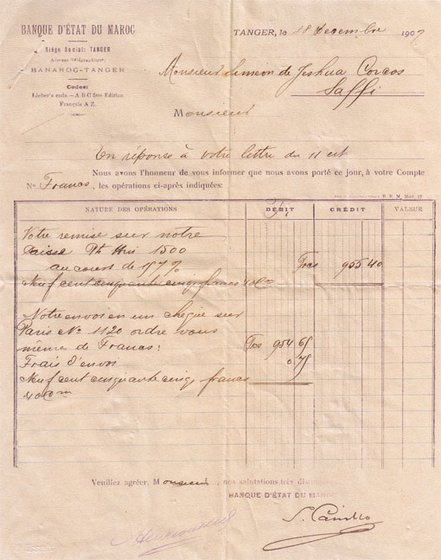 BANQUE D'ÉTAT DU MAROC
Siège Social: TANGER
Adresse Télégraphique:
BANAROC-TANGER
Codes:
Lieber's code - A B C 5me Edition
Français A Z.
TANGER, le 18 Decembre 1907
Monsieur Simeon de Joshua Corcos
Saffi
Monsieur
En réponse à votre lettre du 11 ct
Nous avons l'honneur de vous informer que nous avons porté ce jour, à votre Compte
No Francs, les opérations ci-après indiquées:
NATURE DES OPÉRATIONS DÉBIT CRÉDIT VALEUR
Votre remise sur notre
caisse Ph 1500
au cours de
Neuf cent cinquante cinq francs 40 cm
Frcs 955 40
Notre envoi en un chèque sur
Paris No 1120 ordre vous
même de Francs: Frs 954 65
Frais d'envoi 0 75
Neuf cent cinquante cinq francs
40 cm
Veuillez agréer, Monsieur, nos salutations très
BANQUE D'ÉTAT DU MAROC